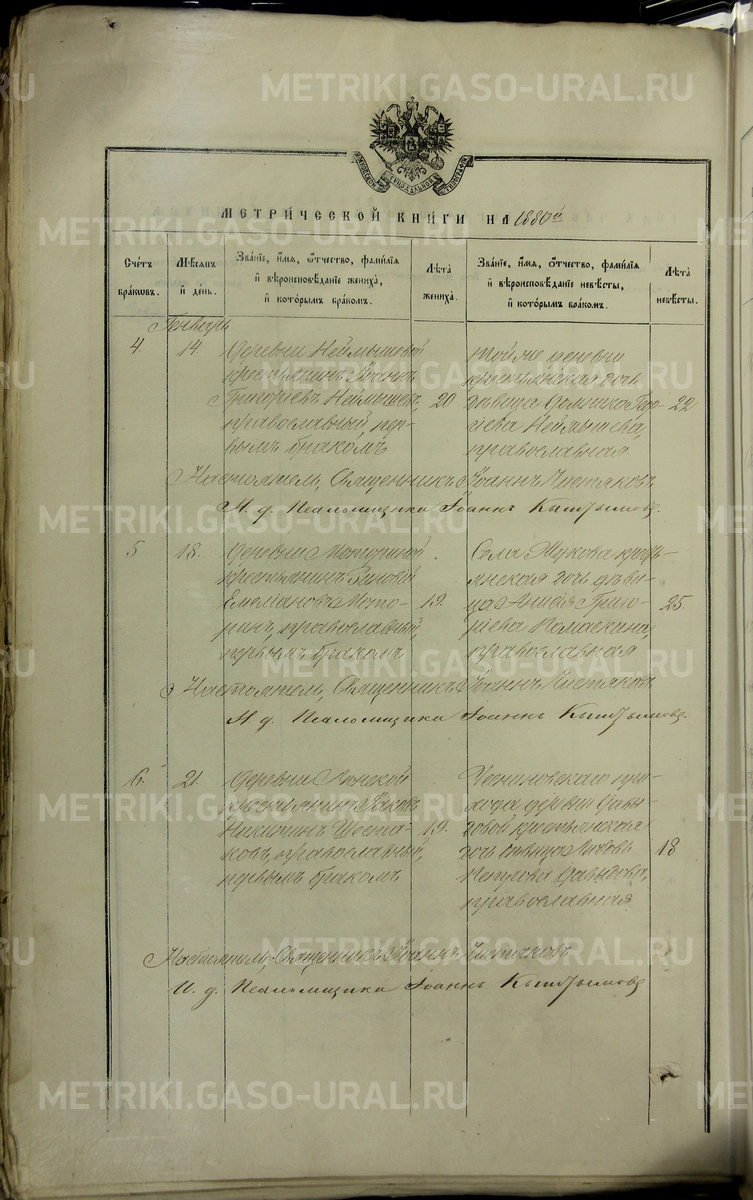 METRIKI.GASO-URAL.RU
МЕТРИ́ЧЕСКОЙ КНИГИ НА 1880й
Сче́тъ бра́ковъ.
Мѣсяцъ и́ де́нь.
Зва́нїе, и́мя, о́тчество, фами́лїя и́ вѣроисповѣ́данїе жениха̀, и́ кото́рымъ бра́комъ.
Лѣ́та жениха̀.
Зва́нїе, и́мя, о́тчество, фами́лїя и́ вѣроисповѣ́данїе невѣ́сты, и́ кото́рымъ бра́комъ.
Лѣ́та невѣ́сты.
Генварь
4
14.
Деревни Неймышевой
крестьянинъ Іоаннъ
Григорьевъ Неймышевъ,
православный пер-
вымъ бракомъ
20
Той же деревни
крестьянская дочь
дѣвица
Неймышева,
православная
22
Настоятель, Священникъ Іоаннъ Чистяковъ
И. д. Псаломщика Іоаннъ Кыштымовъ.
5
18.
Деревни
крестьянинъ Зиновій
Емельяновъ
православный,
первымъ бракомъ
19.
Села Жукова кресть-
янская дочь дѣви-
ца Анисія Григо-
рьева
православная
25.
Настоятель, Священникъ Іоаннъ Чистяковъ
И. д. Псаломщика Іоаннъ Кыштымовъ.
6.
21.
Деревни
крестьянинъ Іаковъ
Никитинъ Шеста-
ковъ, православный,
первымъ бракомъ
19.
при-
хода дервни Давы-
довой крестьянская
дочь дѣвица Любовь
Давыдова,
православная
18
Настоятель, Священникъ Іоаннъ Чистяковъ
И. д. Псаломщика Іоаннъ Кыштымовъ